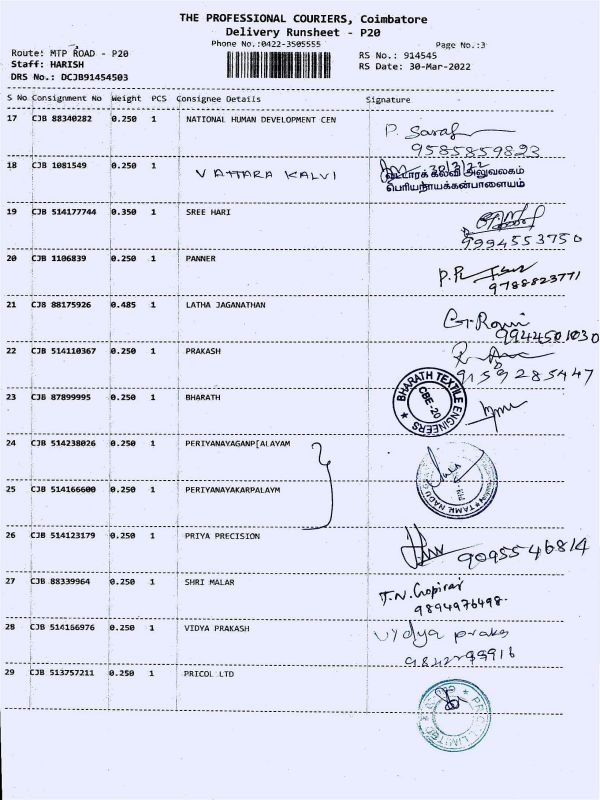 THE PROFESSIONAL COURIERS, Coimbatore
Delivery Runsheet - P20
Phone No.:0422-3505555
Page No.:3
Route: MTP ROAD - P20
RS No.: 914545
Staff: HARISH
RS Date: 30-Mar-2022
DRS No.: DCJB91454503
S No Consignment No Weight PCS Consignee Details Signature
17 CJB 88340282 0.250 1 NATIONAL HUMAN DEVELOPMENT CEN
9585859823
18 CJB 1081549 0.250 1 VATTARA KALVI
30/3/22
வட்டாரக் கல்வி அலுவலகம்
பெரியநாயக்கன்பாளையம்
19 CJB 514177744 0.350 1 SREE HARI
9994553750
20 CJB 1106839 0.250 1 PANNER
9788823771
21 CJB 88175926 0.485 1 LATHA JAGANATHAN
9944501030
22 CJB 514110367 0.250 1 PRAKASH
9159285447
23 CJB 87899995 0.250 1 BHARATH
BHARATH TEXTILE ENGINEERS
CBE-20
24 CJB 514238026 0.250 1 PERIYANAYAGANP[ALAYAM
25 CJB 514166600 0.250 1 PERIYANAYAKARPALAYM
TAMIL NADU
26 CJB 514123179 0.250 1 PRIYA PRECISION
9095546814
27 CJB 88339964 0.250 1 SHRI MALAR
T.N. Gopiraj
9894976498.
28 CJB 514166976 0.250 1 VIDYA PRAKASH
vidya praks
29 CJB 513757211 0.250 1 PRICOL LTD
PRICOL LIMITED